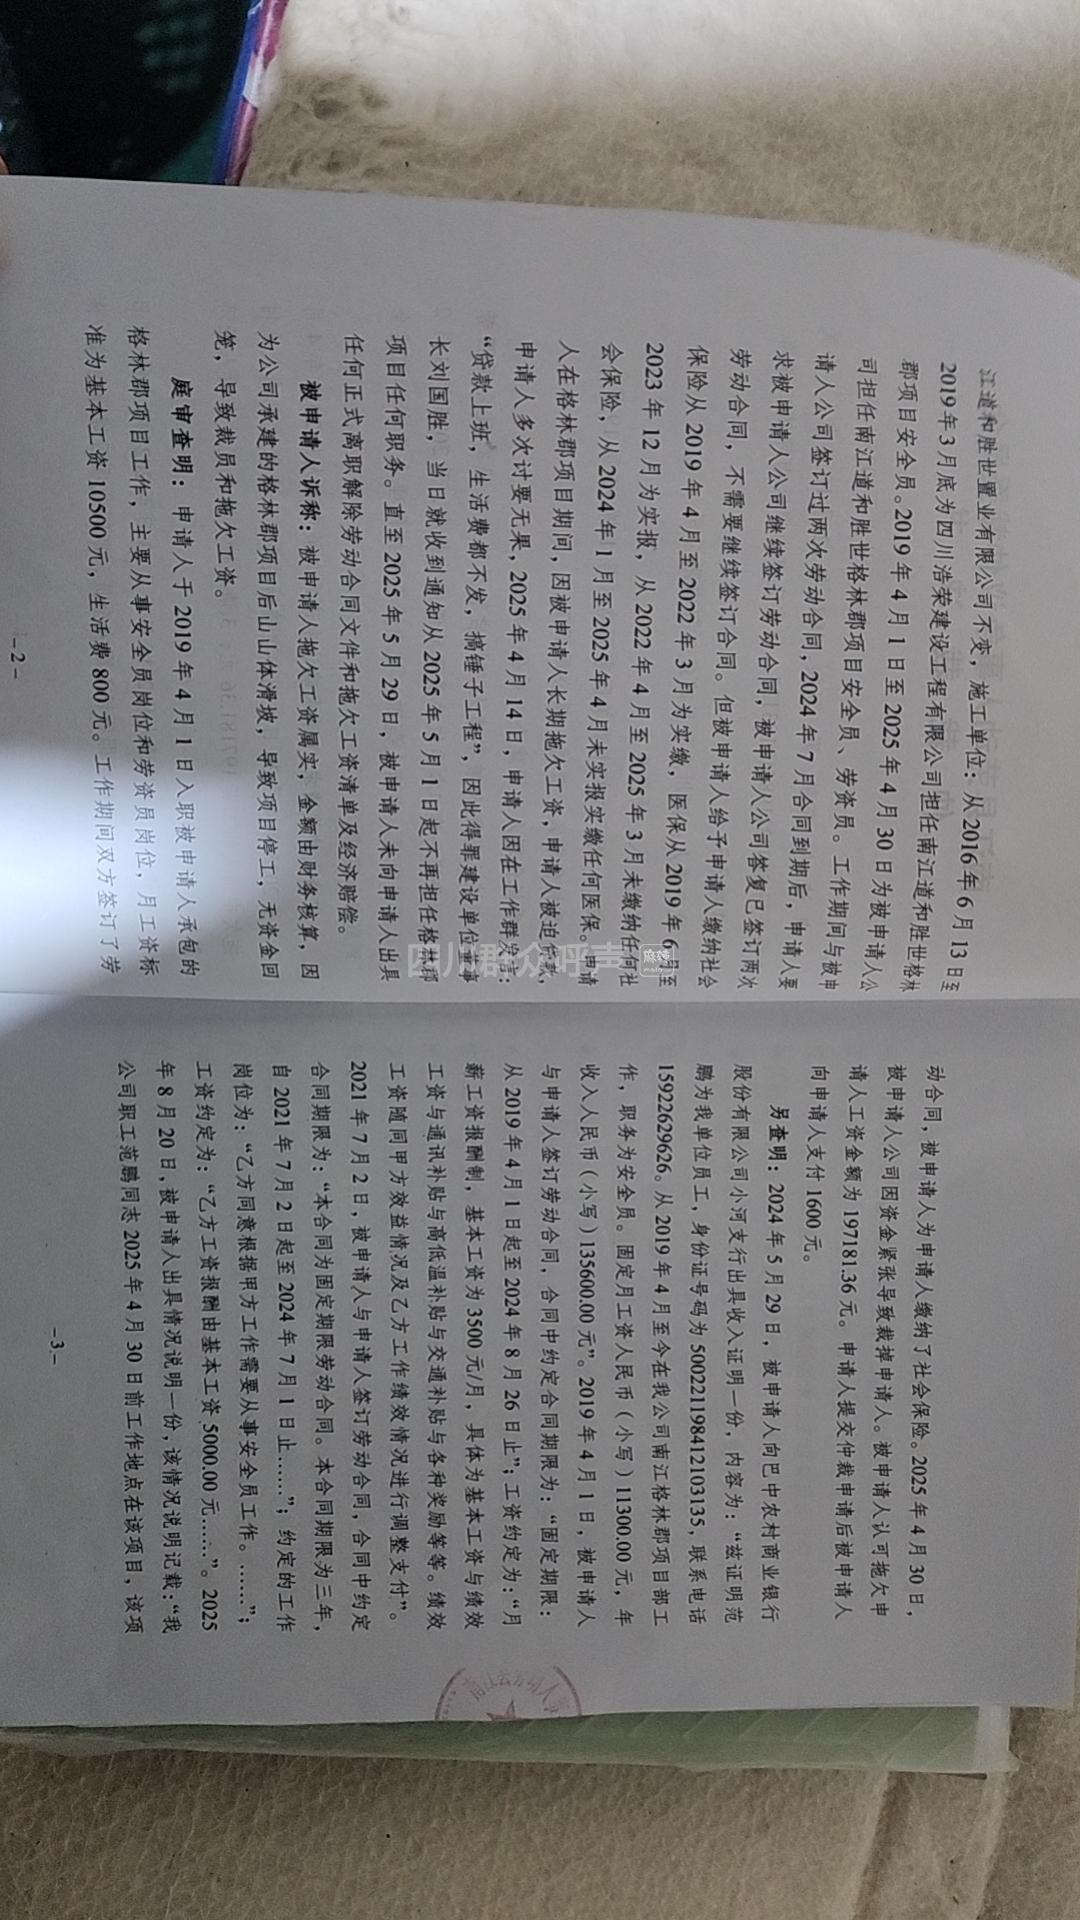 江道和胜世置业有限公司不变，施工单位：从2016年6月13日至
2019年3月底为四川浩荣建设工程有限公司担任南江道和胜世格林
郡项目安全员。2019年4月1日至2025年4月30日为被申请人公
司担任南江道和胜世格林郡项目安全员、劳资员。工作期间与被申
请人公司签订过两次劳动合同，2024年7月合同到期后，申请人要
求被申请人公司继续签订劳动合同，被申请人公司答复已签订两次
劳动合同，不需要继续签订合同。但被申请人给予申请人缴纳社会
保险从2019年4月至2022年3月为实缴，医保从2019年6月至
2023年12月为实报，从2022年4月至2025年3月未缴纳任何社
会保险，从2024年1月至2025年4月未实报实缴任何医保。申请
人在格林郡项目期间，因被申请人长期拖欠工资，申请人被迫贷款，
申请人多次讨要无果，2025年4月14日，申请人因在工作群发言：
“贷款上班，生活费都不发，搞锤子工程”，因此得罪建设单位董事
长刘国胜，当日就收到通知从2025年5月1日起不再担任格林郡
项目任何职务。直至2025年5月29日，被申请人未向申请人出具
任何正式离职解除劳动合同文件和拖欠工资清单及经济赔偿。
被申请人诉称：被申请人拖欠工资属实，金额由财务核算，因
为公司承建的格林郡项目后山山体滑坡，导致项目停工，无资金回
笼，导致裁员和拖欠工资。
庭审查明：申请人于2019年4月1日入职被申请人承包的
格林郡项目工作，主要从事安全员岗位和劳资员岗位，月工资标
准为基本工资10500元，生活费800元。工作期间双方签订了劳
-2-
动合同，被申请人为申请人缴纳了社会保险。2025年4月30日，
被申请人公司因资金紧张导致裁掉申请人。被申请人认可拖欠申
请人工资金额为197181.36元。申请人提交仲裁申请后被申请人
向申请人支付1600元。
另查明：2024年5月29日，被申请人向巴中农村商业银行
股份有限公司小河支行出具收入证明一份，内容为：“兹证明范
鹏为我单位员工，身份证号码为500221198412103135，联系电话
15922629626。从2019年4月至今在我公司南江格林郡项目部工
作，职务为安全员。固定月工资人民币（小写）11300.00元，年
收入人民币（小写）135600.00元”。2019年4月1日，被申请人
与申请人签订劳动合同，合同中约定合同期限为：“固定期限：
从2019年4月1日起至2024年8月26日止”；工资约定为：“月
薪工资报酬制，基本工资为3500元/月，具体为基本工资与绩效
工资与通讯补贴与高低温补贴与交通补贴与各种奖励等等。绩效
工资随同甲方效益情况及乙方工作绩效情况进行调整支付”。
2021年7月2日，被申请人与申请人签订劳动合同，合同中约定
合同期限为：“本合同为固定期限劳动合同。本合同期限为三年，
自2021年7月2日起至2024年7月1日止……”；约定的工作
岗位为：“乙方同意根据甲方工作需要从事安全员工作。……”；
工资约定为：“乙方工资报酬由基本工资5000.00元……”。2025
年8月20日，被申请人出具情况说明一份，该情况说明记载：“我
公司职工范鹏同志2025年4月30日前工作地点在该项目，该项
-3-
四川群众呼声
南江县劳动人事